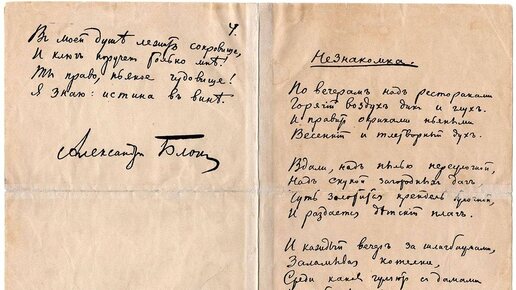 4.
Въ моей душѣ лежитъ сокровище,
И ключъ порученъ только мнѣ!
Ты право, пьяное чудовище!
Я знаю: истина въ винѣ.
Александръ Блокъ
Незнакомка.
По вечерамъ надъ ресторанами
Горячій воздухъ дикъ и глухъ.
И правитъ окриками пьяными
Весенній и тлетворный духъ.
Вдали, надъ пылью переулочной,
Надъ скукой загородныхъ дачъ,
Чуть золотится крендель булочной,
И раздается дѣтскій плачъ.
И каждый вечеръ за шлагбаумами,
Заламывая котелки,
Среди канавъ гуляютъ съ дамами